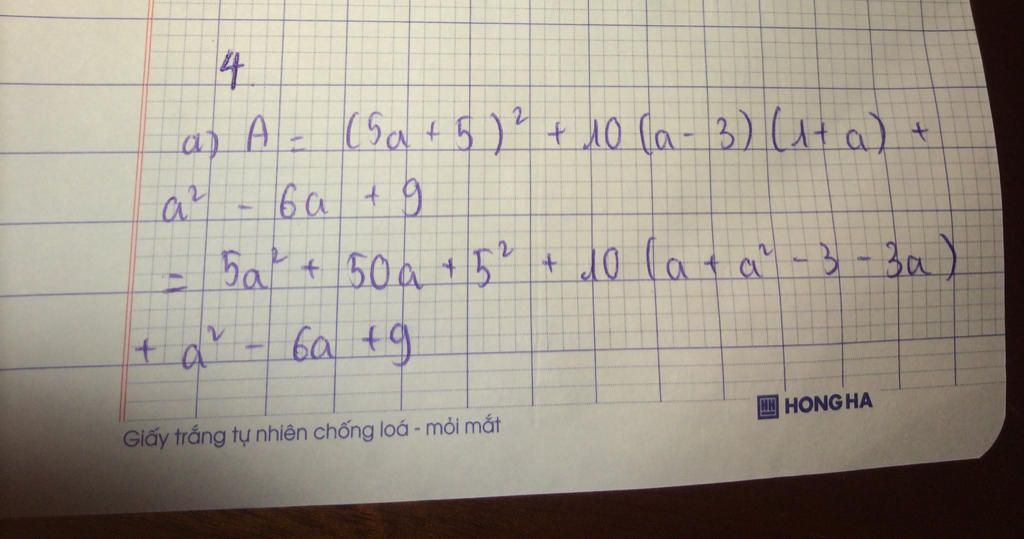 4.
a) A = (5a + 5)² + 10 (a - 3) (1 + a) +
a² - 6a + 9
= 5a² + 50a + 5² + 10 (a + a² - 3 - 3a)
+ a² - 6a + 9
HH HONG HA
Giấy trắng tự nhiên chống loá - mỏi mắt